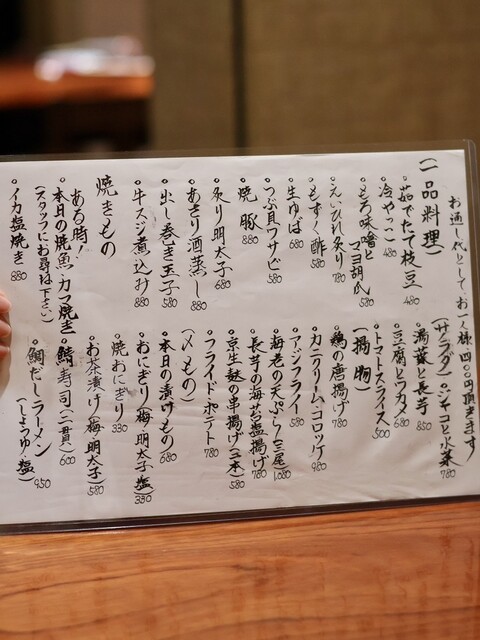 お通し代としてお一人様四〇〇円頂きます
(一品料理)
・茹でたて枝豆 480
・冷やっこ 480
・もろ味噌とマヨ胡瓜 580
・えいひれ炙り 780
・もずく酢 580
・生ゆば 680
・つぶ貝ワサビ 580
・焼豚 880
・炙り明太子 680
・あさり酒蒸し 880
・出し巻き玉子 580
・牛スジ煮込み 880
焼きもの
ある時!
・本日の焼魚・カマ焼き
(スタッフにお尋ね下さい)
・イカ塩焼き 880
(サラダ)・ジャコと水菜 780
・湯葉と長芋 850
・豆腐とワカメ 680
・トマトスライス 500
(揚物)
・鶏の唐揚げ 780
・カニクリームコロッケ 980
・アジフライ 580
・海老の天ぷら(三尾) 1,080
・長芋の海苔塩揚げ 780
・京生麩の串揚げ(二本) 580
・フライドポテト 780
(〆もの)
・本日の漬けもの 680
・おにぎり(梅・明太子・塩) 330
・焼おにぎり 330
・お茶漬け(梅・明太子) 580
・鯖寿司(二貫) 600
・鯛だしラーメン
(しょうゆ・塩) 950